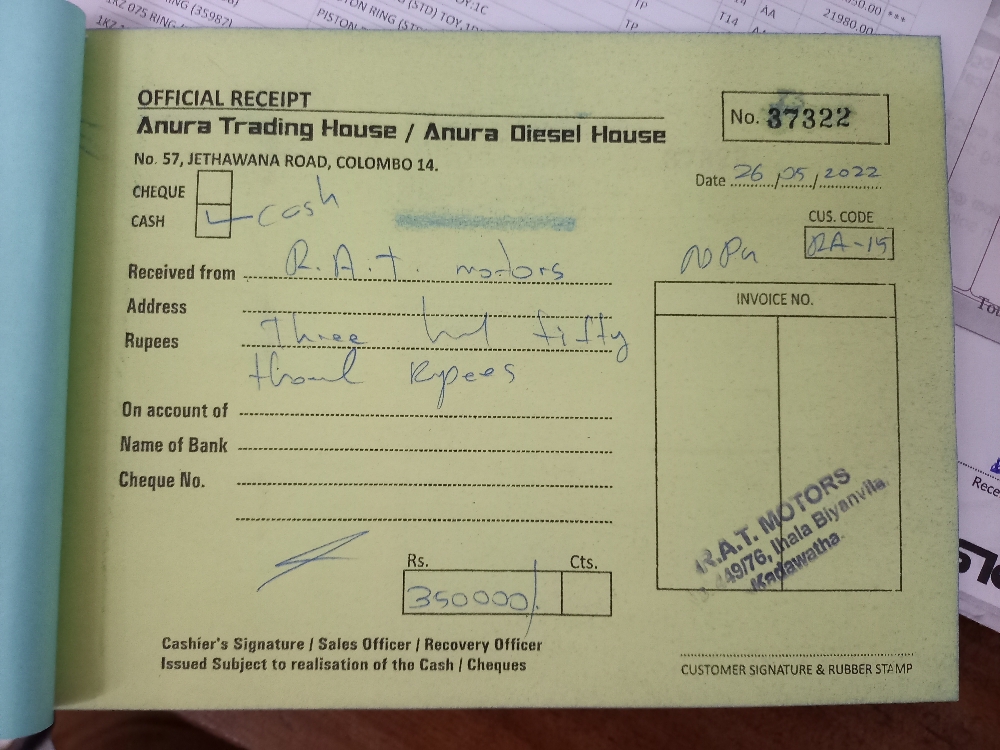 1KZ 075 RING (35987)
PISTON RING (STD) TOY,1C
TP
T14
AA
21980.00
OFFICIAL RECEIPT
Anura Trading House / Anura Diesel House
No. 57, JETHAWANA ROAD, COLOMBO 14.
No. 37322
Date 26/05/2022
CHEQUE
CASH Cash
CUS. CODE
RA-15
Received from R.A.T. motors
Address
Rupees Three hnd fifty
Rupees
On account of
Name of Bank
Cheque No.
INVOICE NO.
R.A.T. MOTORS
449/76, Ihala Biyanvila,
Kadawatha.
Rs. Cts.
350000/
Cashier's Signature / Sales Officer / Recovery Officer
Issued Subject to realisation of the Cash / Cheques
CUSTOMER SIGNATURE & RUBBER STAMP